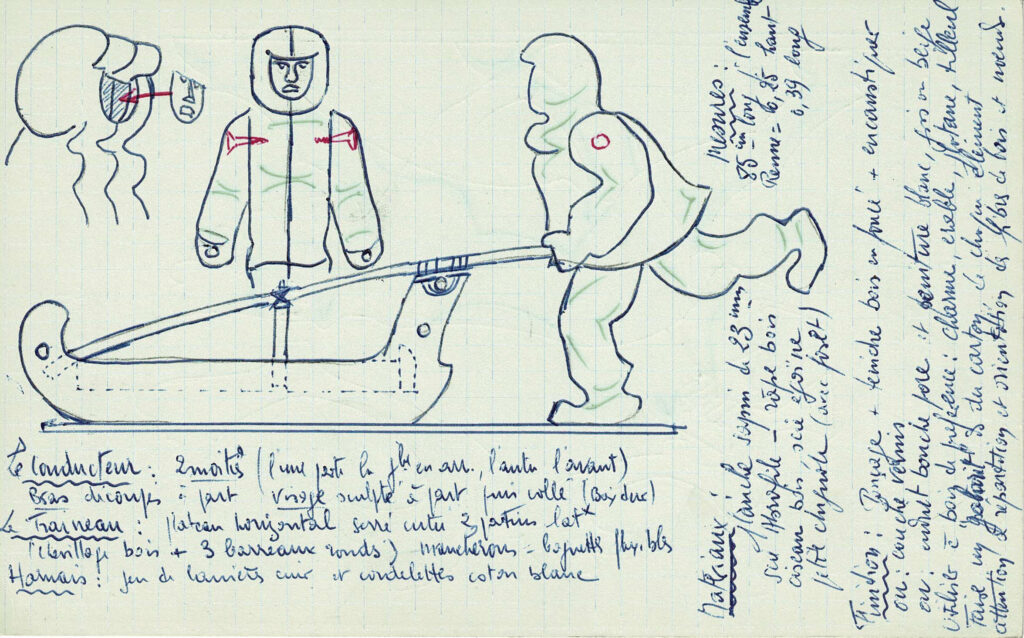 Le Conducteur : 2 moitiés (l'une porte la jbe en arr., l'autre l'avant)
Bras découpés à part visage sculpté à part puis collé (Bois dur)
Le Traineau : plateau horizontal serré entre 2 patins latx
(chevillage bois + 3 barreaux ronds) mancherons = baguettes flexibles
Harnais : jeu de lanières cuir et cordelettes coton blanc
Mesures :
85 cm long l'ensemble
Renne = 0,25 haut
0,39 long
Matériaux :
planche sapin de 23 mm
scie Monofile - râpe bois
ciseau bois scie égoïne
petite chignole (avec forêt)
Finition : Ponçage + teinche bois en foncé + encaustique
ou : couche vernis
ou : enduit bouche pore et peinture blanc, gris ou beige
Utiliser à bois de préférence : charme, érable, platane, tilleul
Faire un "gabarit" du carton de chaque élément
attention à réparation et orientation des fibres de bois et noeuds.